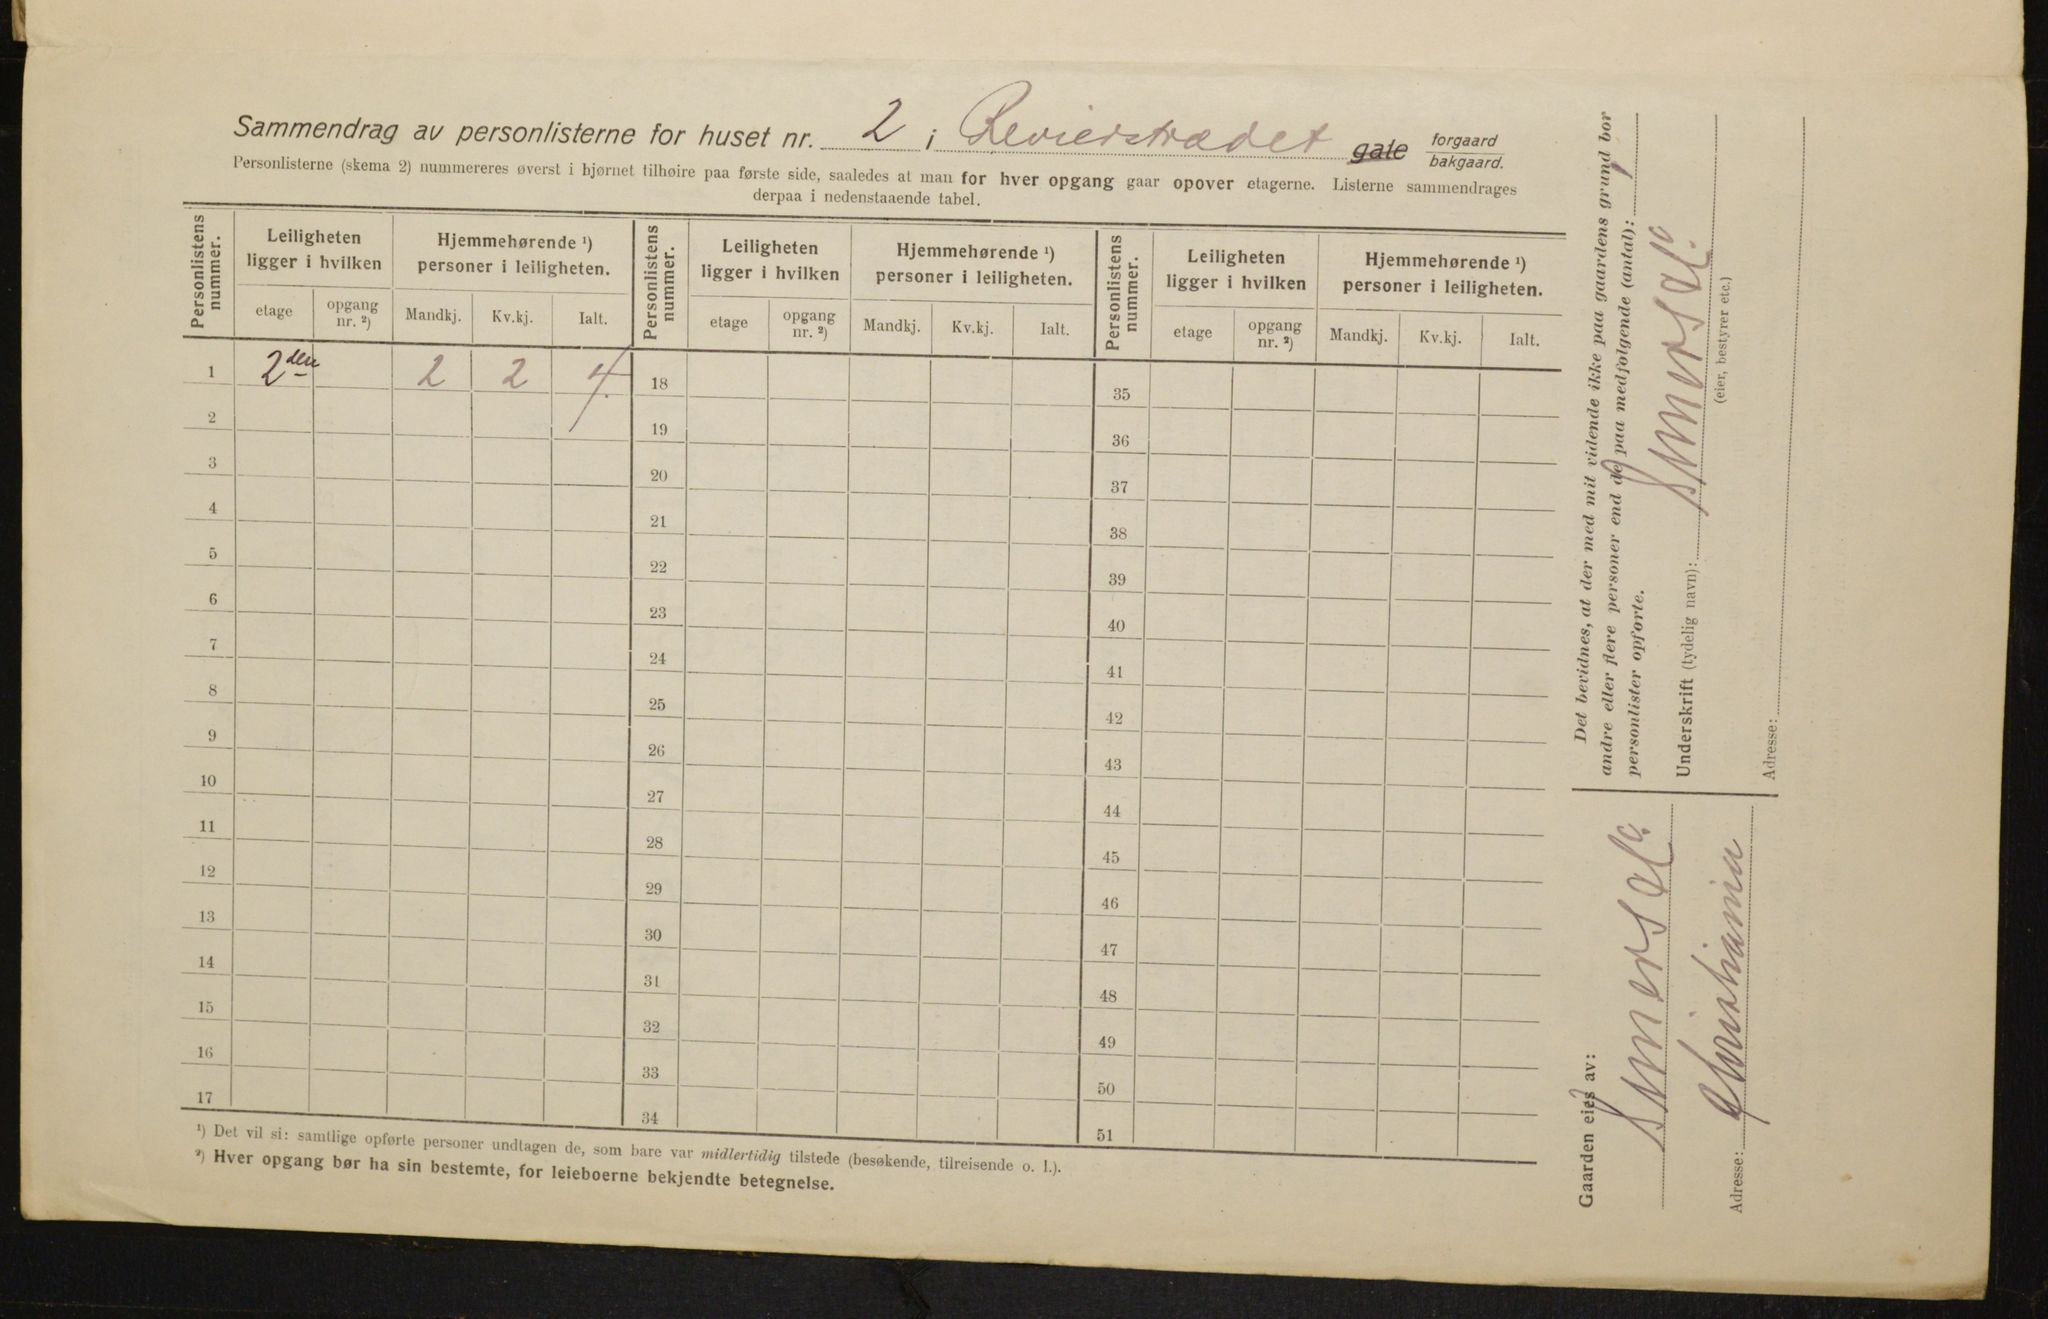 Sammendrag av personlisterne for huset nr. 2 i Revierstrædet gate forgaard bakgaard.
Personlisterne (skema 2) nummereres øverst i hjørnet tilhøire paa første side, saaledes at man for hver opgang gaar opover etagerne. Listerne sammendrages
derpaa i nedenstaaende tabel.
Personlistens nummer. Leiligheten ligger i hvilken Hjemmehørende ¹) personer i leiligheten. Personlistens nummer. Leiligheten ligger i hvilken Hjemmehørende ¹) personer i leiligheten. Personlistens nummer. Leiligheten ligger i hvilken Hjemmehørende ¹) personer i leiligheten.
etage opgang nr. ²) Mandkj. Kv.kj. Ialt. etage opgang nr. ²) Mandkj. Kv.kj. Ialt. etage opgang nr. ²) Mandkj. Kv.kj. Ialt.
1 2den 2 2 4 18 35
2 19 36
3 20 37
4 21 38
5 22 39
6 23 40
7 24 41
8 25 42
9 26 43
10 27 44
11 28 45
12 29 46
13 30 47
14 31 48
15 32 49
16 33 50
17 34 51
¹) Det vil si: samtlige opførte personer undtagen de, som bare var midlertidig tilstede (besøkende, tilreisende o. l.).
²) Hver opgang bør ha sin bestemte, for leieboerne bekjendte betegnelse.
Det bevidnes, at der med mit vidende ikke paa gaardens grund bor
andre eller flere personer end de paa medfølgende (antal):
personlister opførte.
Underskrift (tydelig navn):
(eier, bestyrer etc.)
Adresse:
Gaarden eies av:
Adresse: Christiania